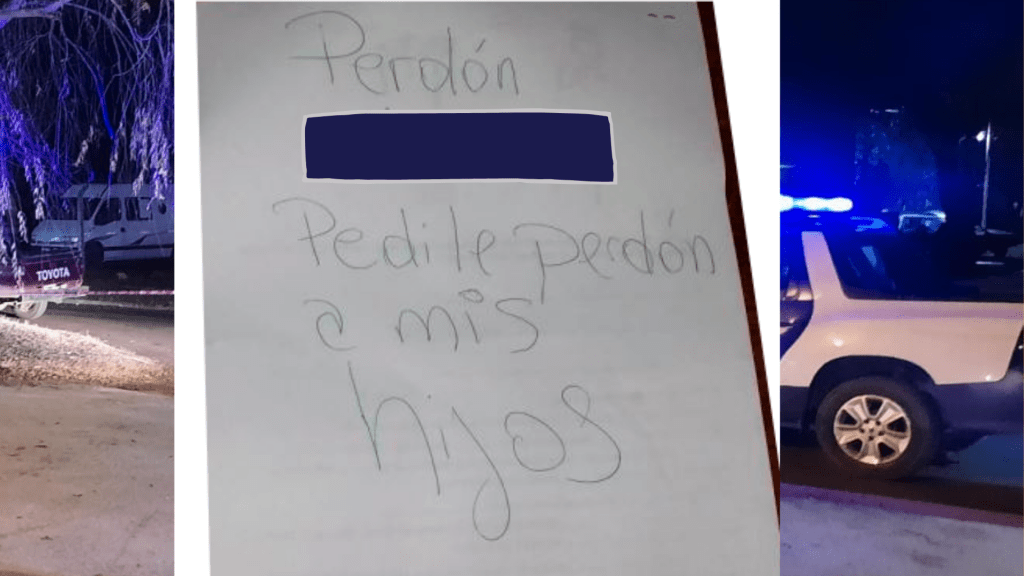 Perdón
Pedile perdón
a mis
hijos
TOYOTA